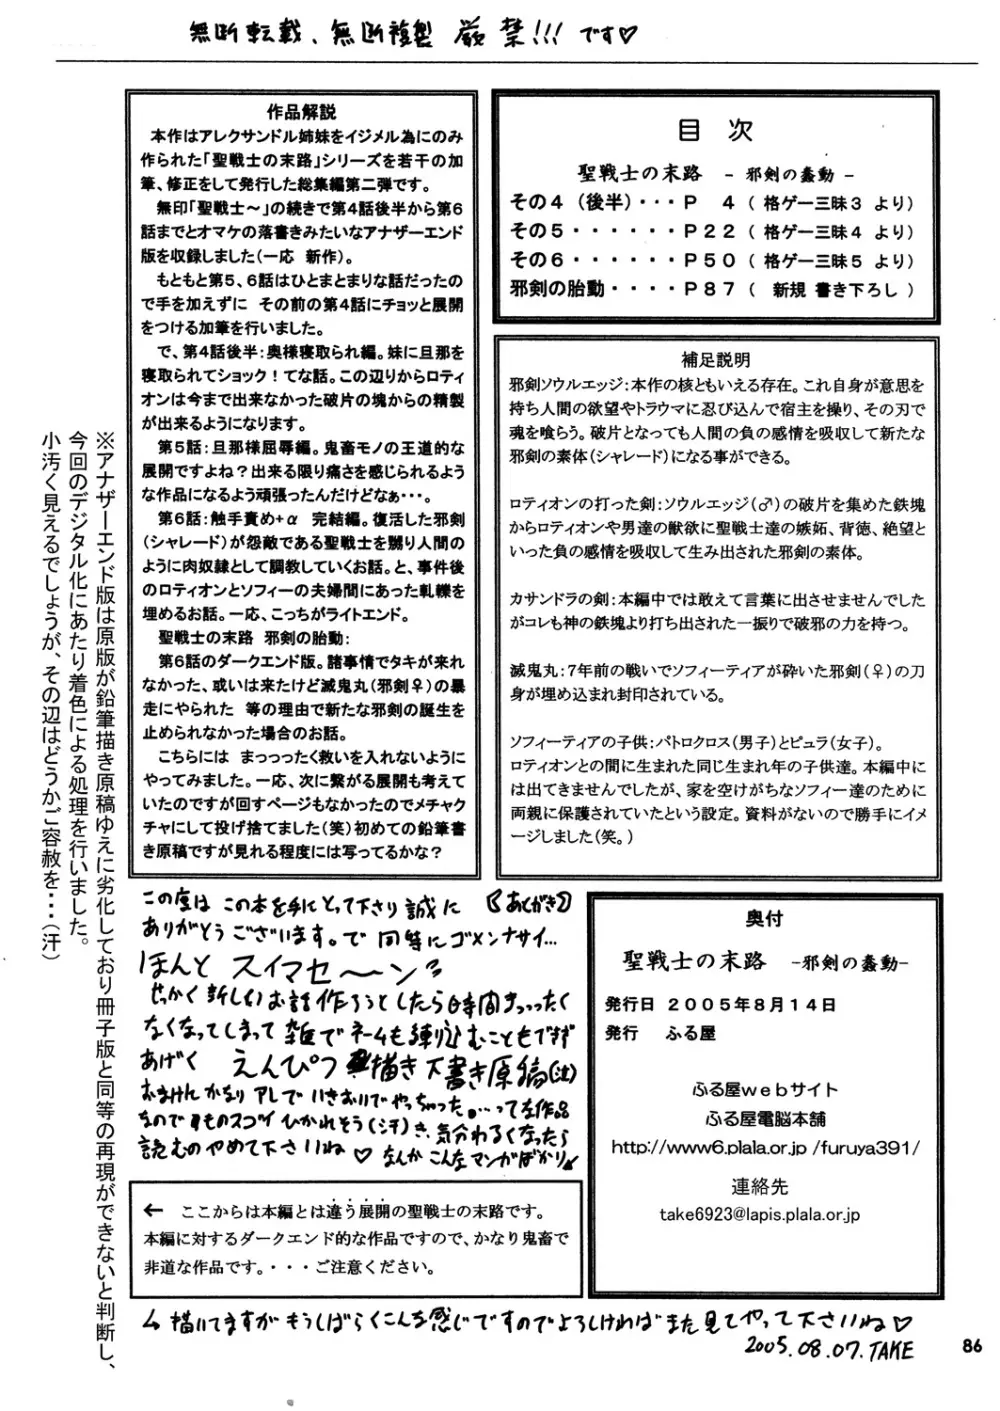 無断転載、無断複製 厳禁!!! です♡
作品解説
本作はアレクサンドル姉妹をイジメル為にのみ
作られた「聖戦士の末路」シリーズを若干の加
筆、修正をして発行した総集編第二弾です。
無印「聖戦士～」の続きで第4話後半から第6
話までとオマケの落書きみたいなアナザーエンド
版を収録しました(一応 新作)。
もともと第5、6話はひとまとまりな話だったの
で手を加えずに その前の第4話にチョッと展開
をつける加筆を行いました。
で、第4話後半：奥様寝取られ編。妹に旦那を
寝取られてショック！てな話。この辺りからロティ
オンは今まで出来なかった破片の塊からの精製
が出来るようになります。
第5話：旦那様屈辱編。鬼畜モノの王道的な
展開ですよね？出来る限り痛さを感じられるよう
な作品になるよう頑張ったんだけどなぁ・・・。
第6話：触手責め+α 完結編。復活した邪剣
(シャレード)が怨敵である聖戦士を嬲り人間の
ように肉奴隷として調教していくお話。と、事件後
のロティオンとソフィーの夫婦間にあった軋轢を
埋めるお話。一応、こっちがライトエンド。
聖戦士の末路 邪剣の胎動：
第6話のダークエンド版。諸事情でタキが来れ
なかった、或いは来たけど滅鬼丸(邪剣♀)の暴
走にやられた 等の理由で新たな邪剣の誕生を
止められなかった場合のお話。
こちらには まっっったく救いを入れないように
やってみました。一応、次に繋がる展開も考えて
いたのですが回すページもなかったのでメチャク
チャにして投げ捨てました(笑)初めての鉛筆書
き原稿ですが見れる程度には写ってるかな？
目次
聖戦士の末路 - 邪剣の蠢動 -
その4 (後半)・・・P 4 ( 格ゲー三昧3 より)
その5・・・・・・P22 ( 格ゲー三昧4 より)
その6・・・・・・P50 ( 格ゲー三昧5 より)
邪剣の胎動・・・・P87 ( 新規 書き下ろし )
補足説明
邪剣ソウルエッジ：本作の核ともいえる存在。これ自身が意思を
持ち人間の欲望やトラウマに忍び込んで宿主を操り、その刃で
魂を喰らう。破片となっても人間の負の感情を吸収して新たな
邪剣の素体(シャレード)になる事ができる。
ロティオンの打った剣：ソウルエッジ(♂)の破片を集めた鉄塊
からロティオンや男達の獣欲に聖戦士達の嫉妬、背徳、絶望と
いった負の感情を吸収して生み出された邪剣の素体。
カサンドラの剣：本編中では敢えて言葉に出させませんでした
がコレも神の鉄塊より打ち出された一振りで破邪の力を持つ。
滅鬼丸：7年前の戦いでソフィーティアが砕いた邪剣(♀)の刀
身が埋め込まれ封印されている。
ソフィーティアの子供：パトロクロス(男子)とピュラ(女子)。
ロティオンとの間に生まれた同じ生まれ年の子供達。本編中に
は出てきませんでしたが、家を空けがちなソフィー達のために
両親に保護されていたという設定。資料がないので勝手にイメ
ージしました(笑。)
※アナザーエンド版は原版が鉛筆描き原稿ゆえに劣化しており冊子版と同等の再現ができないと判断し、
今回のデジタル化にあたり着色による処理を行いました。
小汚く見えるでしょうが、その辺はどうかご容赦を・・・(汗)
《あとがき》
この度は この本を手にとって下さり誠に
ありがとうございます。で 同時にゴメンナサイ…
ほんと スイマセ～ン
せっかく新しいお話作ろうとしたら時間まっったく
なくなってしまって 雑で ネームも練り込むこともできず
あげく えんぴつ描き下書き原稿(泣)
おまけん かなり アレで いきおいでやっちゃった。…って な作品
なので ものスゴイ ひかれそう(汗)き、気分わるくなったら
読むのやめて下さいね♡ なんか こんなマンガばかり
奥付
聖戦士の末路 -邪剣の蠢動-
発行日 2005年8月14日
発行 ふる屋
ふる屋webサイト
ふる屋電脳本舗
http://www6.plala.or.jp /furuya391/
連絡先
take6923@lapis.plala.or.jp
← ここからは本編とは違う展開の聖戦士の末路です。
本編に対するダークエンド的な作品ですので、かなり鬼畜で
非道な作品です。・・・ご注意ください。
描いてますが もうしばらくこんな感じですのでよろしければ また見てやって下さいね♡
2005.08.07.TAKE
86